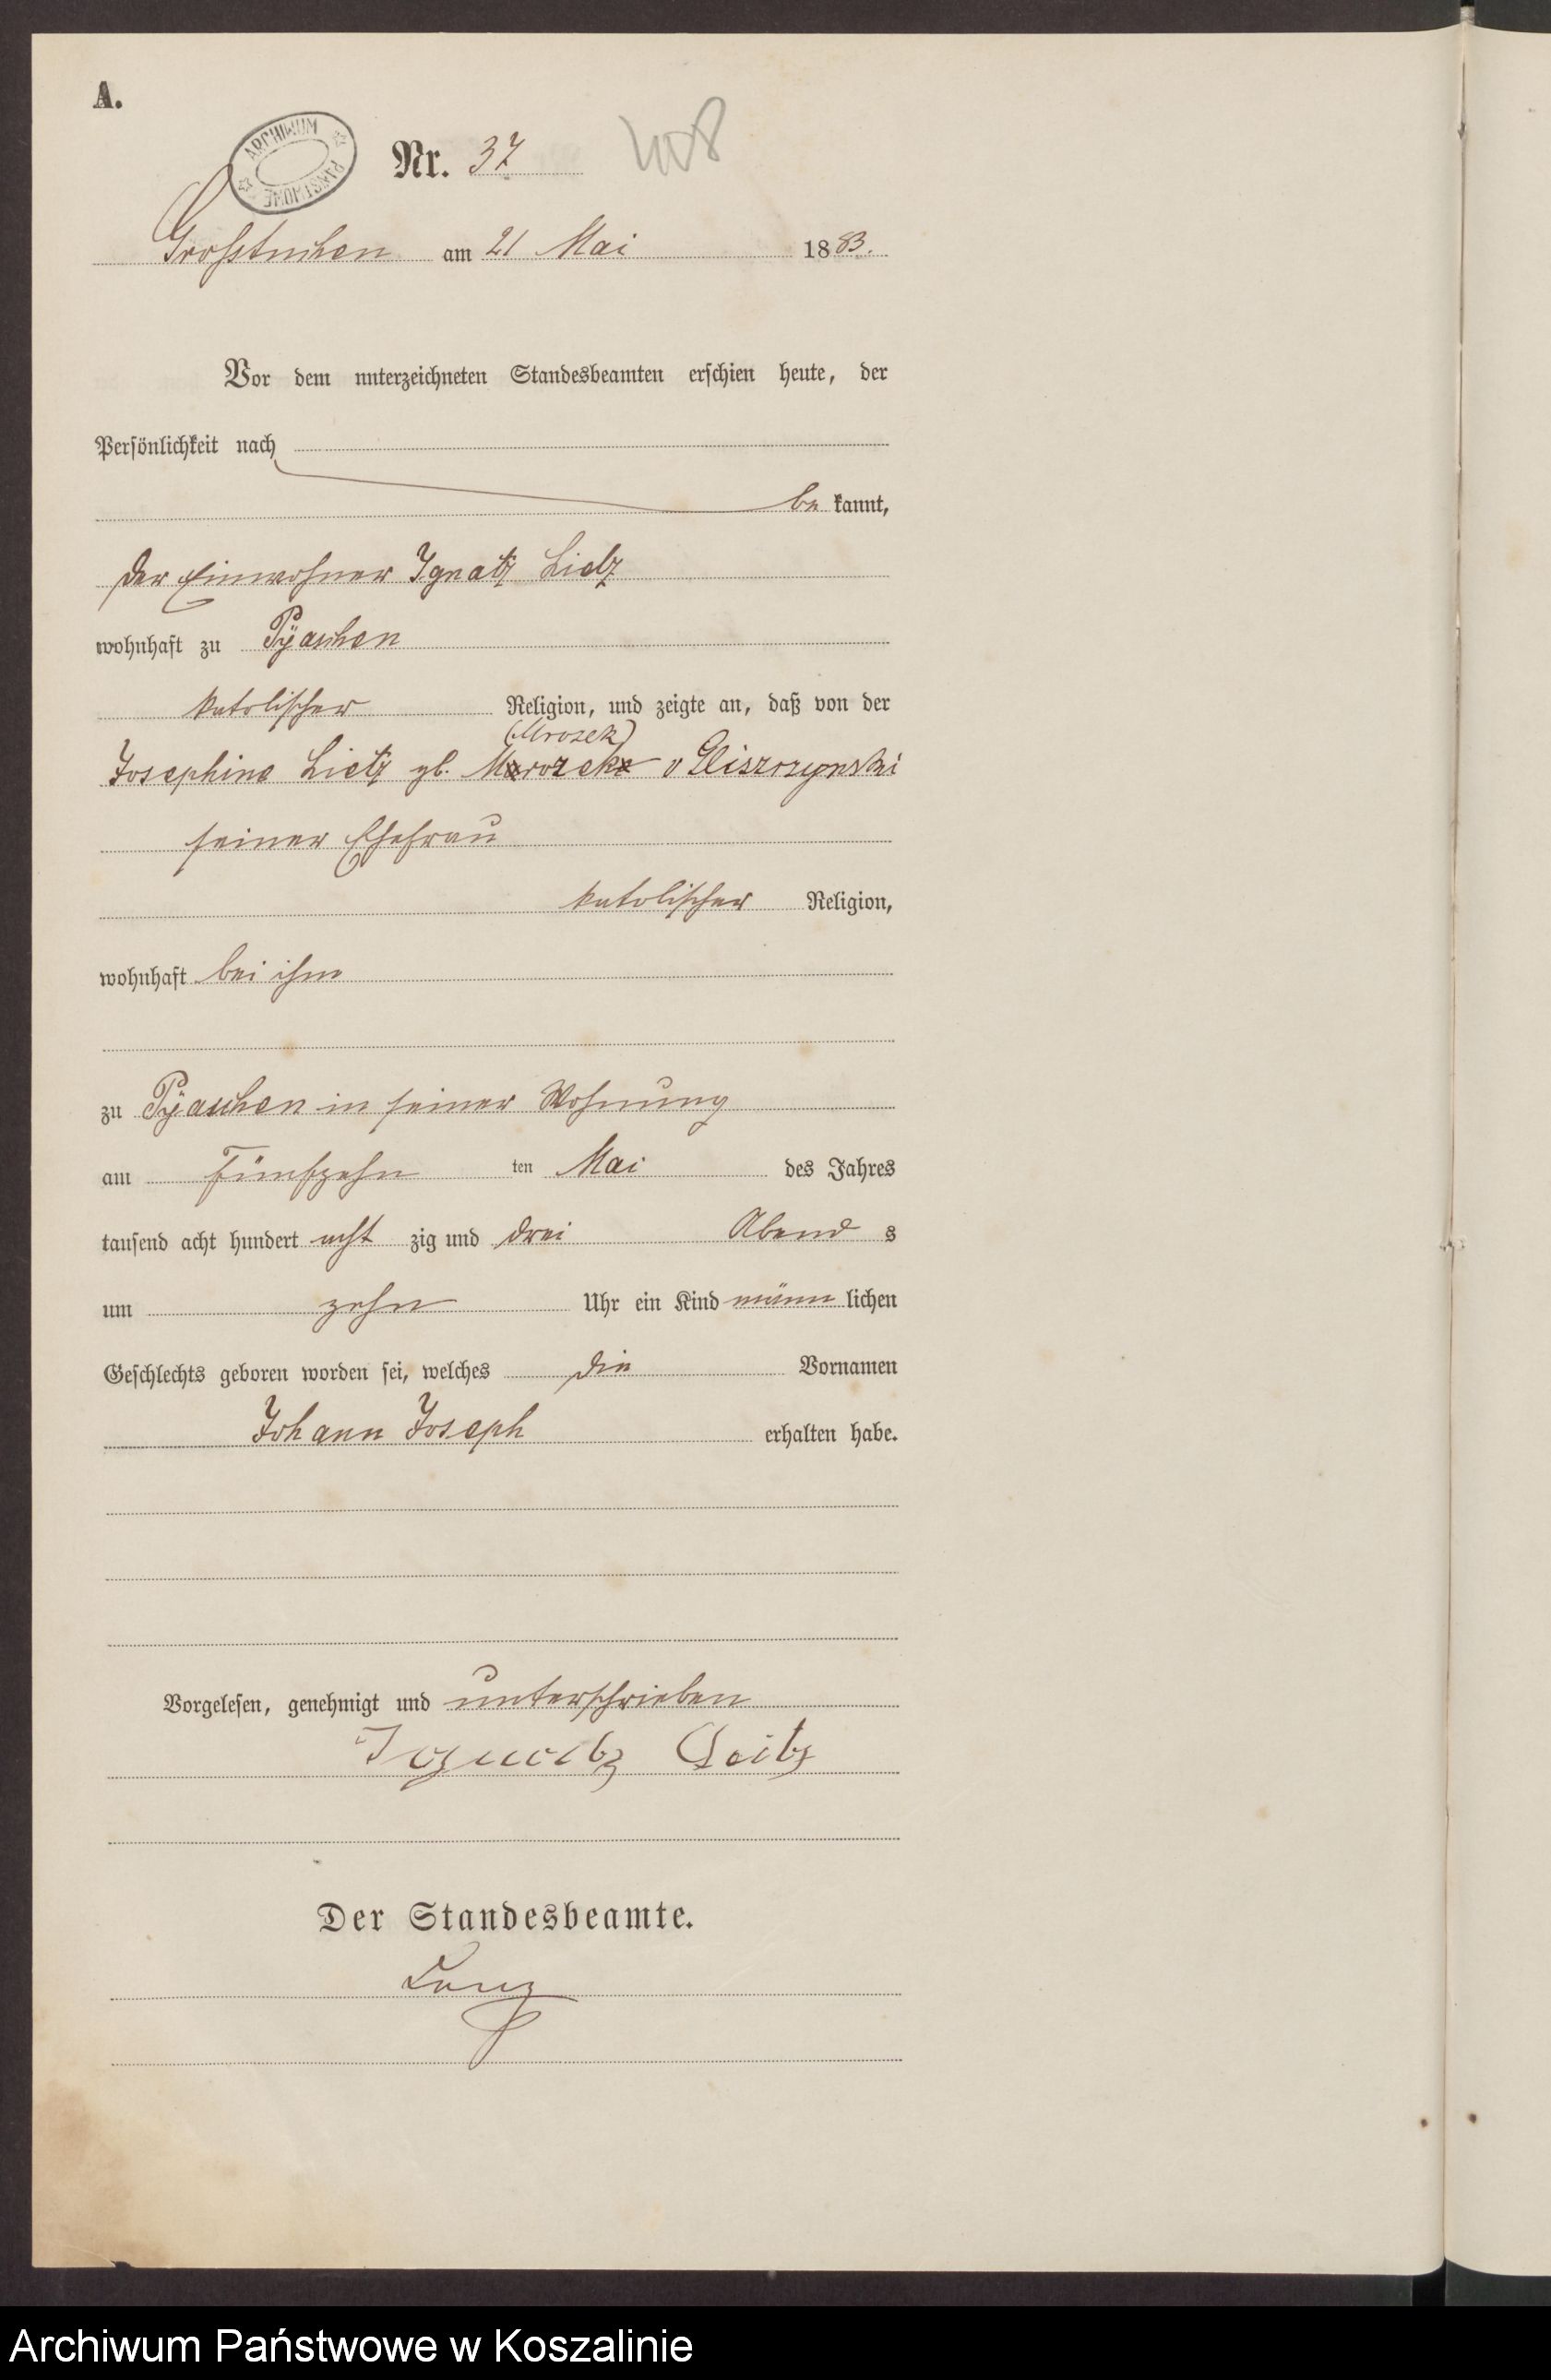 A.
ARCHIWUM PAŃSTWOWE
Nr. 37 408
Großtuchen am 21 Mai 1883.
Vor dem unterzeichneten Standesbeamten erschien heute, der
Persönlichkeit nach
be kannt,
der Einwohner Ignatz Lietz
wohnhaft zu Pÿaschen
katolischer Religion, und zeigte an, daß von der
(Mrozek)
Josephine Lietz gb. v Gliszczynski
seiner Ehefrau
katolischer Religion,
wohnhaft bei ihm
zu Pÿaschen in seiner Wohnung
am fünfzehn ten Mai des Jahres
tausend acht hundert acht zig und drei Abend s
um zehn Uhr ein Kind männ lichen
Geschlechts geboren worden sei, welches die Vornamen
Johann Joseph erhalten habe.
Vorgelesen, genehmigt und unterschrieben
Ignatz Leitz
Der Standesbeamte.
Archiwum Państwowe w Koszalinie